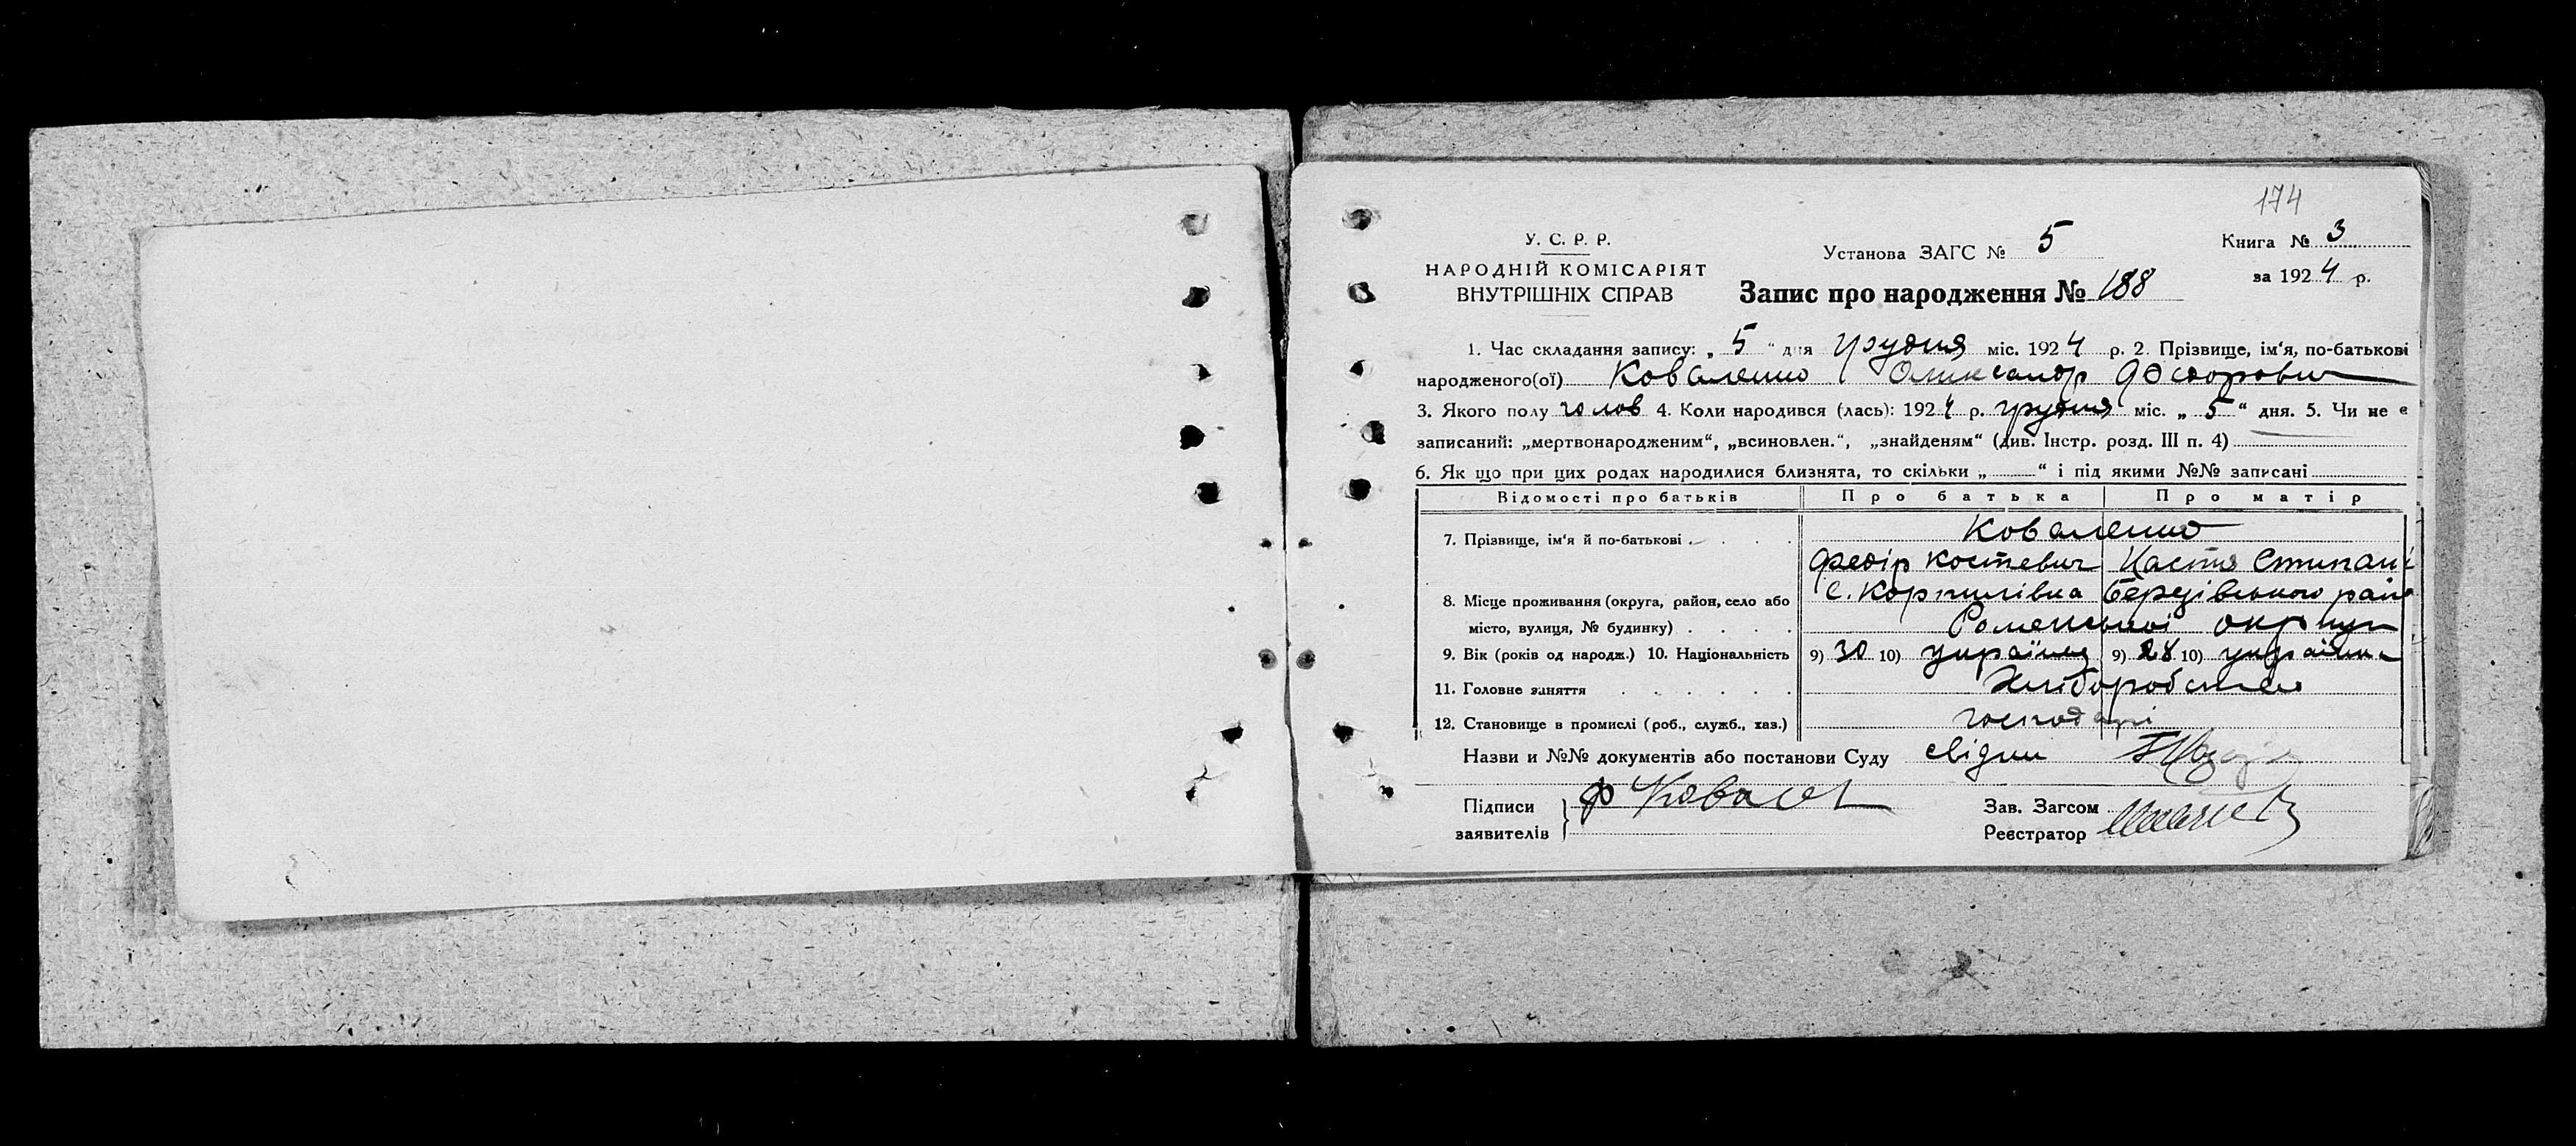 174
У. С. Р. Р.
НАРОДНІЙ КОМІСАРІЯТ
ВНУТРІШНІХ СПРАВ
Установа ЗАГС № 5
Книга № 3
за 1924 р.
Запис про народження № 188
1. Час складання запису: „ 5 “ дня грудня міс. 1924 р. 2. Прізвище, ім‘я, по-батькові
народженого(ої) Коваленко Олександр Федорович
3. Якого полу чолов 4. Коли народився (лась): 1924 р. грудня міс. „ 5 “ дня. 5. Чи не є
записаний: „мертвонародженим“, „всиновлен.“, „знайденям“ (див. Інстр. розд. III п. 4)
6. Як що при цих родах народилися близнята, то скільки „ “ і під якими №№ записані
Відомості про батьків Про батька Про матір
7. Прізвище, ім‘я й по-батькові Коваленко
Федір Костевич Настя Степан
8. Місце проживання (округа, район, село або с. Корпилівка Березівського рай
місто, вулиця, № будинку) Роменської округи
9. Вік (років од народж.) 10. Національність 9) 30 10) українец 9) 28 10) україн
11. Головне заняття Хліборобство
12. Становище в промислі (роб., служб., хаз.) господарі
Назви и №№ документів або постанови Суду свідки
Підписи
заявителів
Ф Ковале
Зав. Загсом
Реєстратор